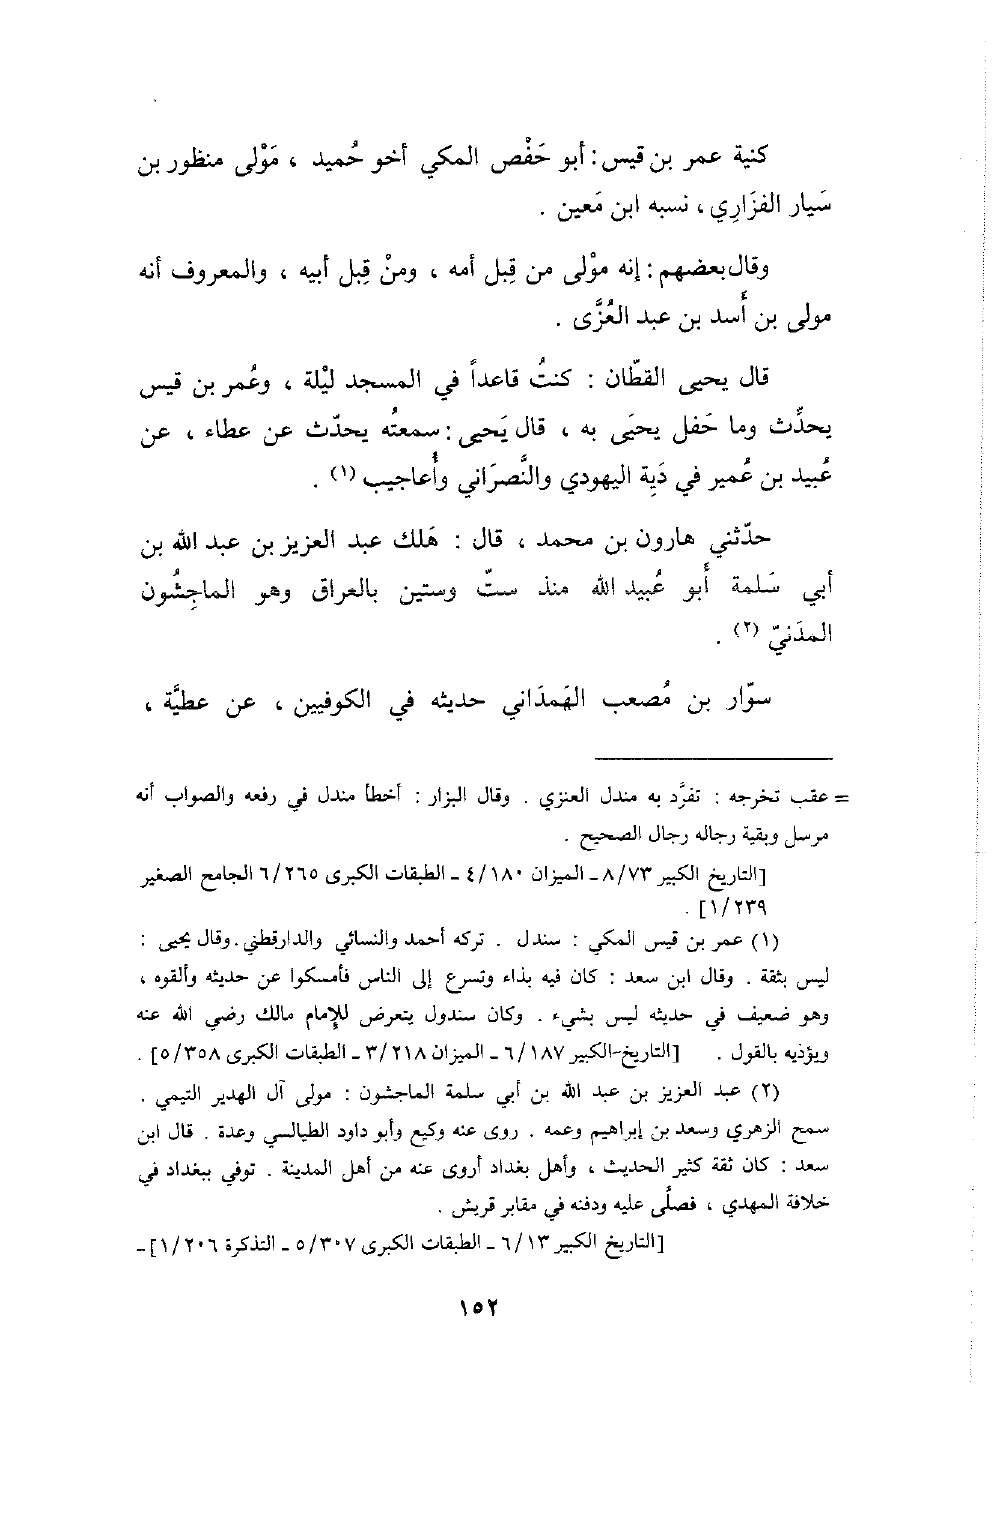 كنية عمر بن قيس : أبو حَفْص المكي أخو حُميد ، مَوْلى منظور بن
سَيار الفزَارِي ، نسبه ابن مَعين .
وقال بعضهم : إنه موْلى من قِبل أمه ، ومنْ قِبل أبيه ، والمعروف أنه
مولى بن أَسد بن عبد العُزَّى .
قال يحيى القطّان : كنتُ قاعداً في المسجد ليْلة ، وعُمر بن قيس
يحدِّث وما حَفل يحيَى به ، قال يَحيى : سمعتُه يحدّث عن عطاء ، عن
عُبيد بن عُمير في دَيِة اليهودي والنَّصرَاني وأُعاجيب (١) .
حدّثني هارون بن محمد ، قال : هَلك عبد العزيز بن عبد الله بن
أبي سَلمة أَبو عُبيد الله منذ ستّ وستين بالعراق وهو الماجِشُون
المدَنيّ (٢) .
سوّار بن مُصعب الهَمدَاني حديثه في الكوفيين ، عن عطيَّة ،
= عقب تخرجه : تفرَّد به مندل العنزي . وقال البزار : أخطأ مندل في رفعه والصواب أنه
مرسل وبقية رجاله رجال الصحيح .
[التاريخ الكبير ٨/٧٣ ـ الميزان ٤/١٨٠ ـ الطبقات الكبرى ٦/٢٦٥ الجامع الصغير
١/٢٣٩] .
(١) عمر بن قيس المكي : سندل . تركه أحمد والنسائي والدارقطني . وقال يحيى :
ليس بثقة . وقال ابن سعد : كان فيه بذاء وتسرع إلى الناس فأمسكوا عن حديثه وألقوه ،
وهو ضعيف في حديثه ليس بشيء . وكان سندول يتعرض للإمام مالك رضي الله عنه
ويؤذيه بالقول . [التاريخ الكبير ٦/١٨٧ ـ الميزان ٣/٢١٨ ـ الطبقات الكبرى ٥/٣٥٨] .
(٢) عبد العزيز بن عبد الله بن أبي سلمة الماجشون : مولى آل الهدير التيمي .
سمح الزهري وسعد بن إبراهيم وعمه . روى عنه وكيع وأبو داود الطيالسي وعدة . قال ابن
سعد : كان ثقة كثير الحديث ، وأهل بغداد أروى عنه من أهل المدينة . توفي ببغداد في
خلافة المهدي ، فصلُى عليه ودفنه في مقابر قريش .
[التاريخ الكبير ٦/١٣ ـ الطبقات الكبرى ٥/٣٠٧ ـ التذكرة ١/٢٠٦] ـ
١٥٢